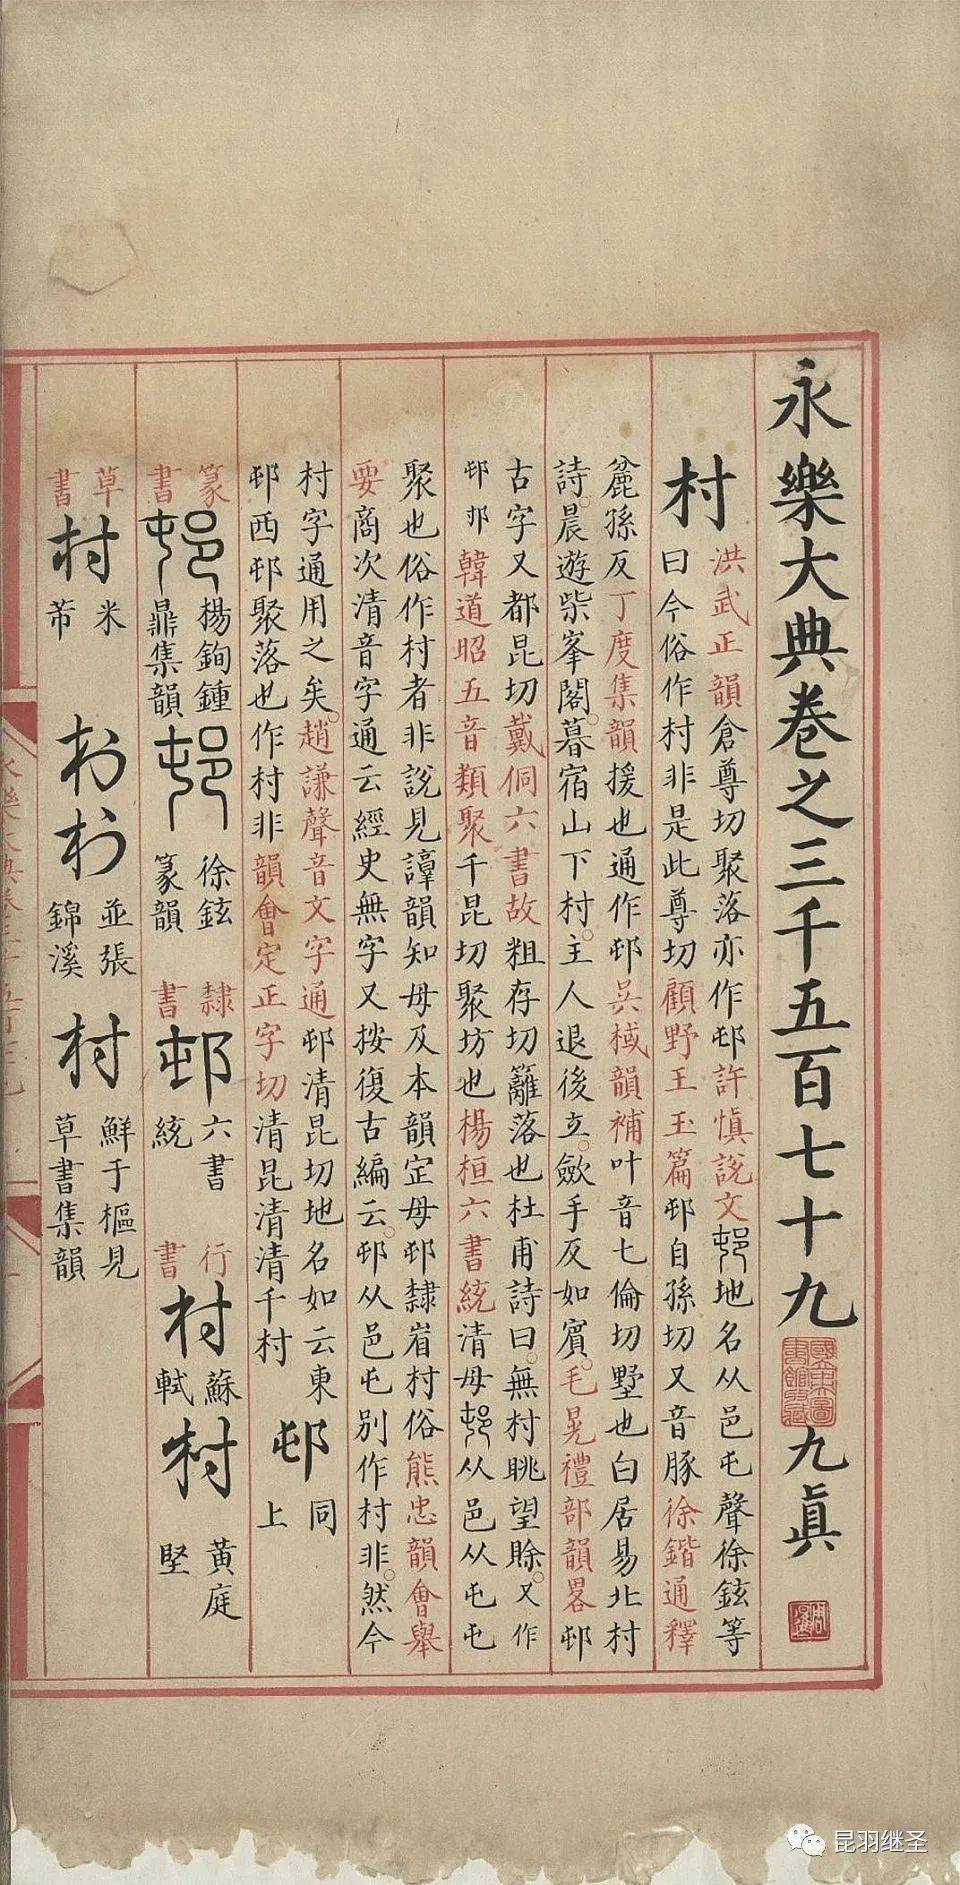 永樂大典卷之三千五百七十九 九真
村 洪武正韻倉尊切聚落亦作邨許慎說文邨地名从邑屯聲徐鉉等
曰今俗作村非是此尊切顧野王玉篇邨自孫切又音豚徐鍇通釋
麄孫反丁度集韻援也通作邨吳棫韻補叶音七倫切墅也白居易北村
詩晨遊紫峯閣暮宿山下村主人退後立斂手反如賓毛晃禮部韻畧邨
古字又都昆切戴侗六書故粗存切籬落也杜甫詩曰無村眺望賒又作
邨 韓道昭五音類聚千昆切聚坊也楊桓六書統清母邨从邑从屯屯
聚也俗作村者非說見諄韻知母及本韻定母邨隸省村俗熊忠韻會舉
要商次清音字通云經史無字又按復古編云邨从邑屯別作村非然今
村字通用之矣趙謙聲音文字通邨清昆切地名如云東
邨西邨聚落也作村非韻會定正字切清昆清清千村
邨 同上
篆書 邨 楊鉤鍾鼎集韻 邨 徐鉉篆韻 隸書 邨 六書統 行書 村 蘇軾 村 黃庭堅
草書 村 米芾 村 村 並張錦溪 村 鮮于樞見草書集韻
國立北平圖書館收藏
昆羽继圣